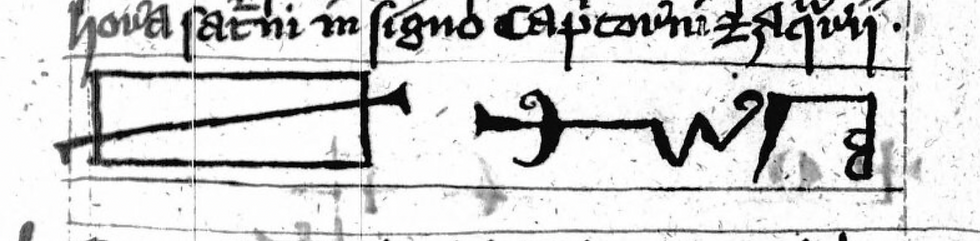 hora saturni in signo Capricorni & aquarii ·